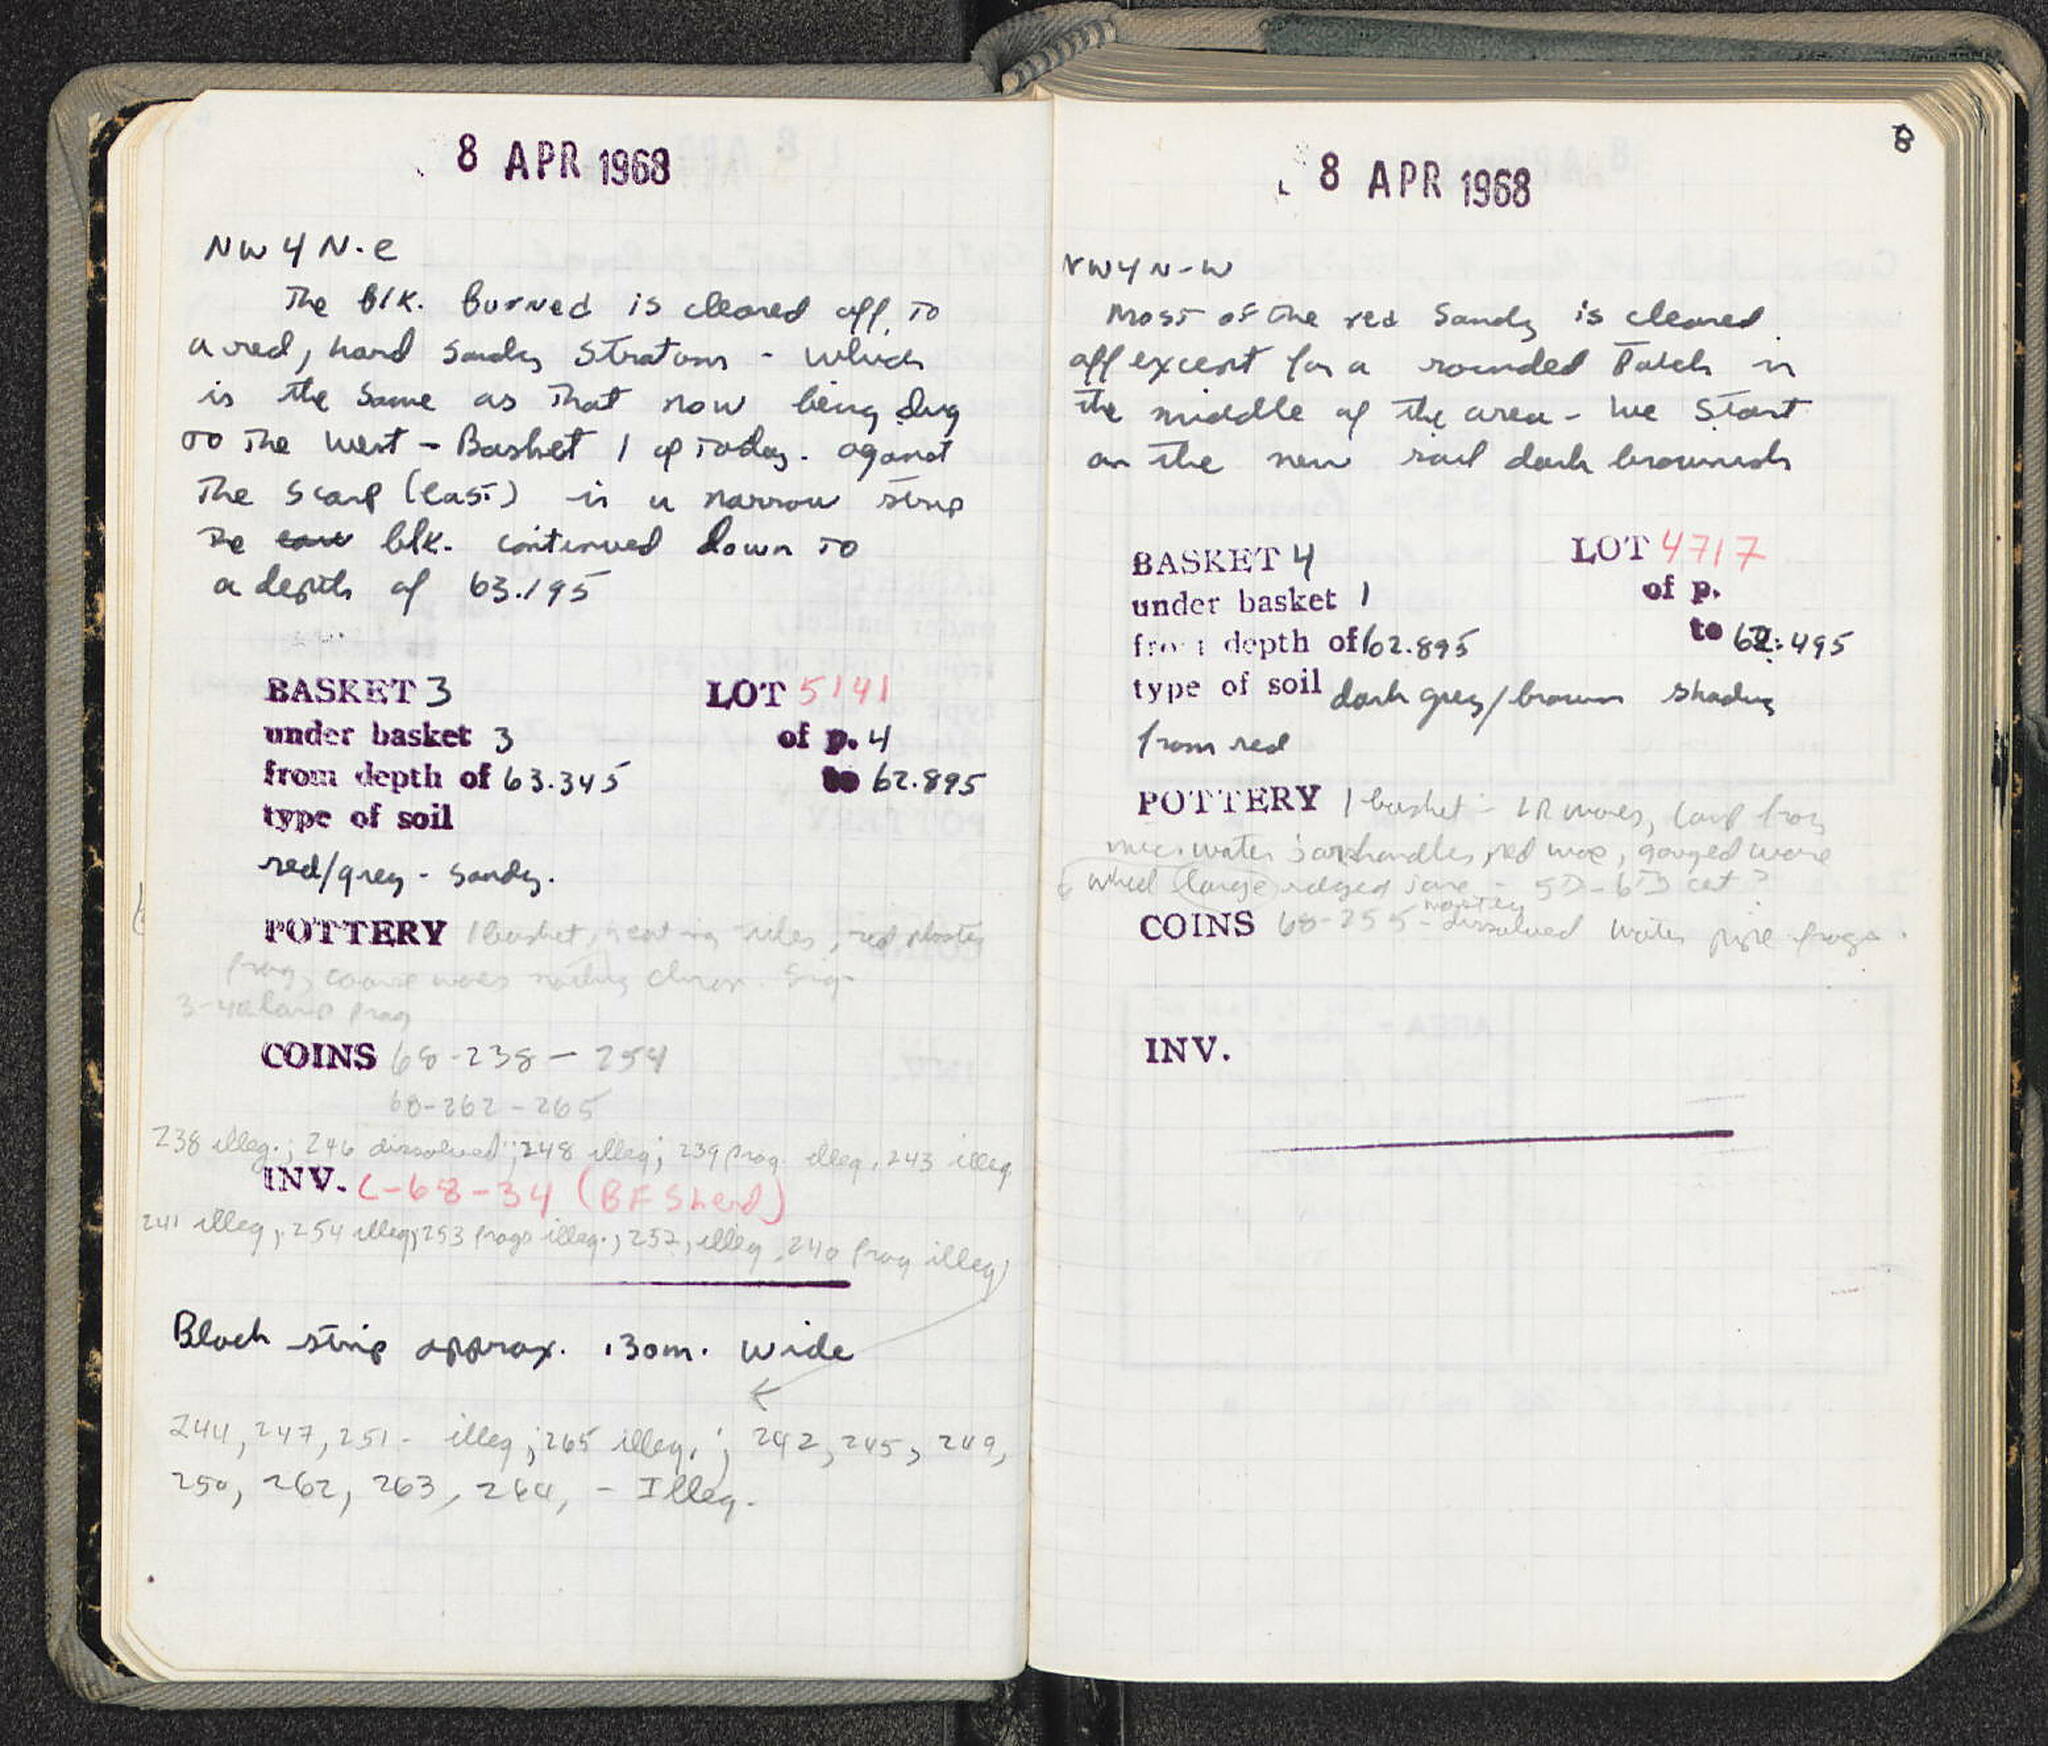 8 APR 1968
NW 4 N-E
The Blk. Burned is cleared off, to
a red, hard sandy stratum - which
is the same as that now being dug
to the west - Basket 1 of today. against
The scarp (East) is a narrow strip
blk. continued down to
a depth of 63.195
BASKET 3 LOT 5141
under basket 3 of p. 4
from depth of 63.345 to 62.895
type of soil
red/grey - sandy.
POTTERY 1 basket, heating tubes, red plaster
frag, coarse wares
3-4 lamp frag
COINS 68-238 - 254
68-262-265
238 illeg.; 246 dissolved; 248 illeg; 239 frag. illeg. 243 illeg.
INV. C-68-34 (BF Sherd)
241 illeg; 254 illeg; 253 frags illeg.; 252, illeg, 240 frag illeg;
Black strip approx. .30m. wide
244, 247, 251 - illeg; 265 illeg.; 242, 245, 249,
250, 262, 263, 264, - Illeg.
8
8 APR 1968
NW4N-W
Most of the red sandy is cleared
off except for a rounded patch in
the middle of the area - We start
on the new soil dark brownish
BASKET 4 LOT 4717
under basket 1 of p.
from depth of 62.895 to 62.495
type of soil dark grey/brown shading
from red
POTTERY 1 basket - LR wares, lamp frag
water jar handles, red ware, gouged ware
wheel (large) ridged jare - 5D-6D cet?
COINS 68-255 - mostly dissolved water pipe frags.
INV.